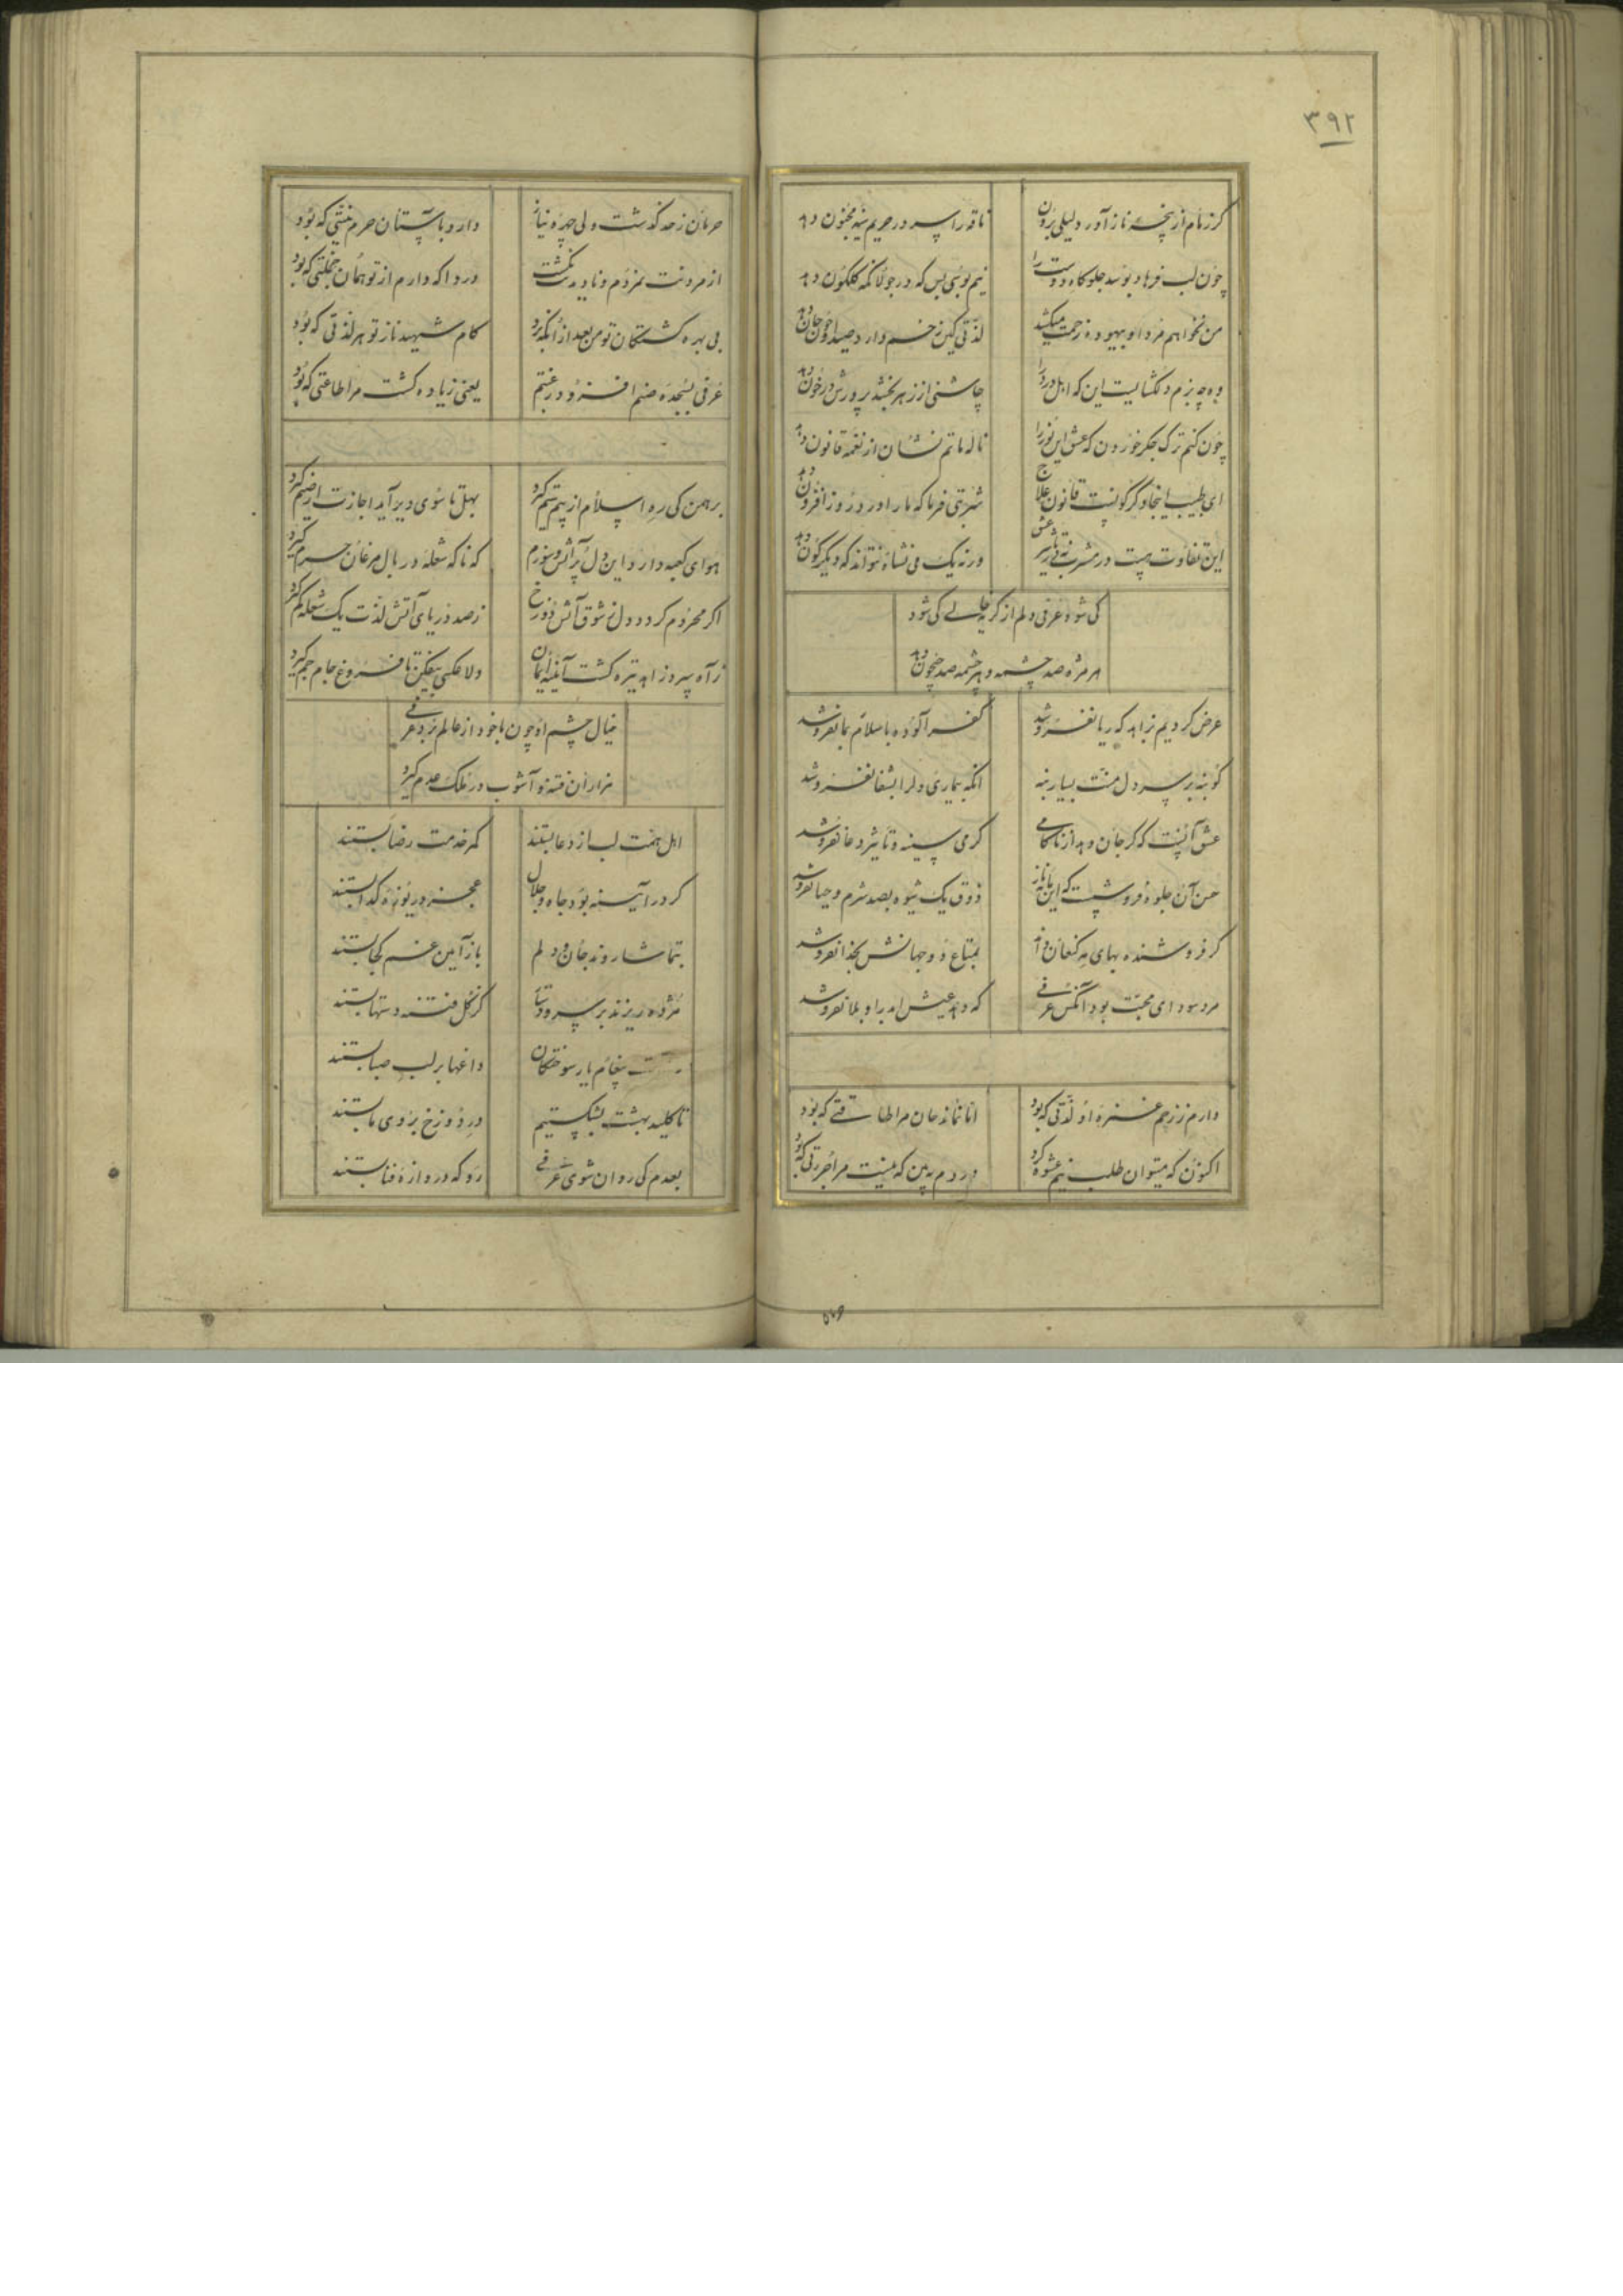 ۳۹۲
گر زمام از پنجه ناز آورد لیلی برون ناقه را سر در حریم سینه مجنون دهد
چون لب فرهاد بوسد جلوه‌گاه دوست را نیم بوسی بس که در جولانگه گلگون دهد
من نخواهم مرد او بیهوده زحمت میکشد لذتی کین زخم دارد صید را خون جان دهد
وه چه بزم دلگشایست این که اهل درد را چاشنی از زهر بخشد پرورش در خون دهد
چون کنم ترک جگر خوردن که عشق این نور را ناله ماتم نشان از نغمه قانون دهد
ای طبیب اینجا دگرگونست قانون علاج شربتی فرما که ما را درد روز افزون دهد
این تفاوت هست در مشرب نه در تاثیر عشق ورنه یک می نشاه نتواند که دیگرگون دهد
کی شود عرفی دلم از گریه خالی کی شود
هر مژه صد چشمه و هر چشمه صد جیحون دهد
عرض کردیم بزاهد که ریا نفروشد کفر آلوده باسلام بما نفروشد
گو بنه بر سر دل منت بسیار بنه آنکه بیماری دلرا بشفا نفروشد
عشق آنست که گر جان دهد از ناکامی گرمی سینه و تاثیر دعا نفروشد
حسن آن جلوه فروشست که این مایه ناز ذوق یک شیوه بصد شرم و حیا نفروشد
گر فروشنده بهای مه کنعان داند بمتاع دو جهانش بخدا نفروشد
مرد سودای محبت بود آنکس عرفی که دهد عیش ابد را و بلا نفروشد
دارم ز زخم غمزه او لذتی که بود اما نماند جان مرا طاقتی که بود
اکنون که میتوان طلب نیم عشوه کرد دردم ببین که نیست مرا جرئتی که بود
حرمان ز حد گذشت ولی چهره نیاز دارد بآستان حرم نسبتی که بود
از مروتت نمردم و نادیده گشت دردا که دارم از تو همان خجلتی که بود
بی بهره کشتگان تو من بعد از آنکه برد کام شهید ناز تو هر لذتی که بود
عرفی بسجده صنم افزود رغبتم یعنی زیاده گشت مرا طاعتی که بود
برهمن کی ره اسلام از بیم ستم گیرد بهل تا سوی دیر آید اجازت از صنم گیرد
هوای کعبه دارد این دل پر آتش و سوزم که ناگه شعله در بال مرغان حرم گیرد
اگر محروم گردد دل ز شوق آتش دوزخ ز صد دریای آتش لذت یک شعله کم گیرد
ز آه سرد زاهد تیره گشت آئینه ایمان دلا عکسی بیفکن تا فروغ جام جم گیرد
خیال چشم او چون با خود از عالم برد عرفی
هزاران فتنه و آشوب در ملک عدم گیرد
اهل همت لب از دعا بستند کمر خدمت رضا بستند
گر در آیینه بود جاه و جلال عجز در یوزه گدا بستند
بتماشا روند جان و دلم باز آیین غم کجا بستند
مژده ریزند بر سر و دستا کز گل فتنه دستها بستند
پیغام یار سوختگان داغها بر لب صبا بستند
تا کلید بهشت بشکستیم در دوزخ بروی ما بستند
بعدم کی روان شوی عرفی رو که دروازه فنا بستند